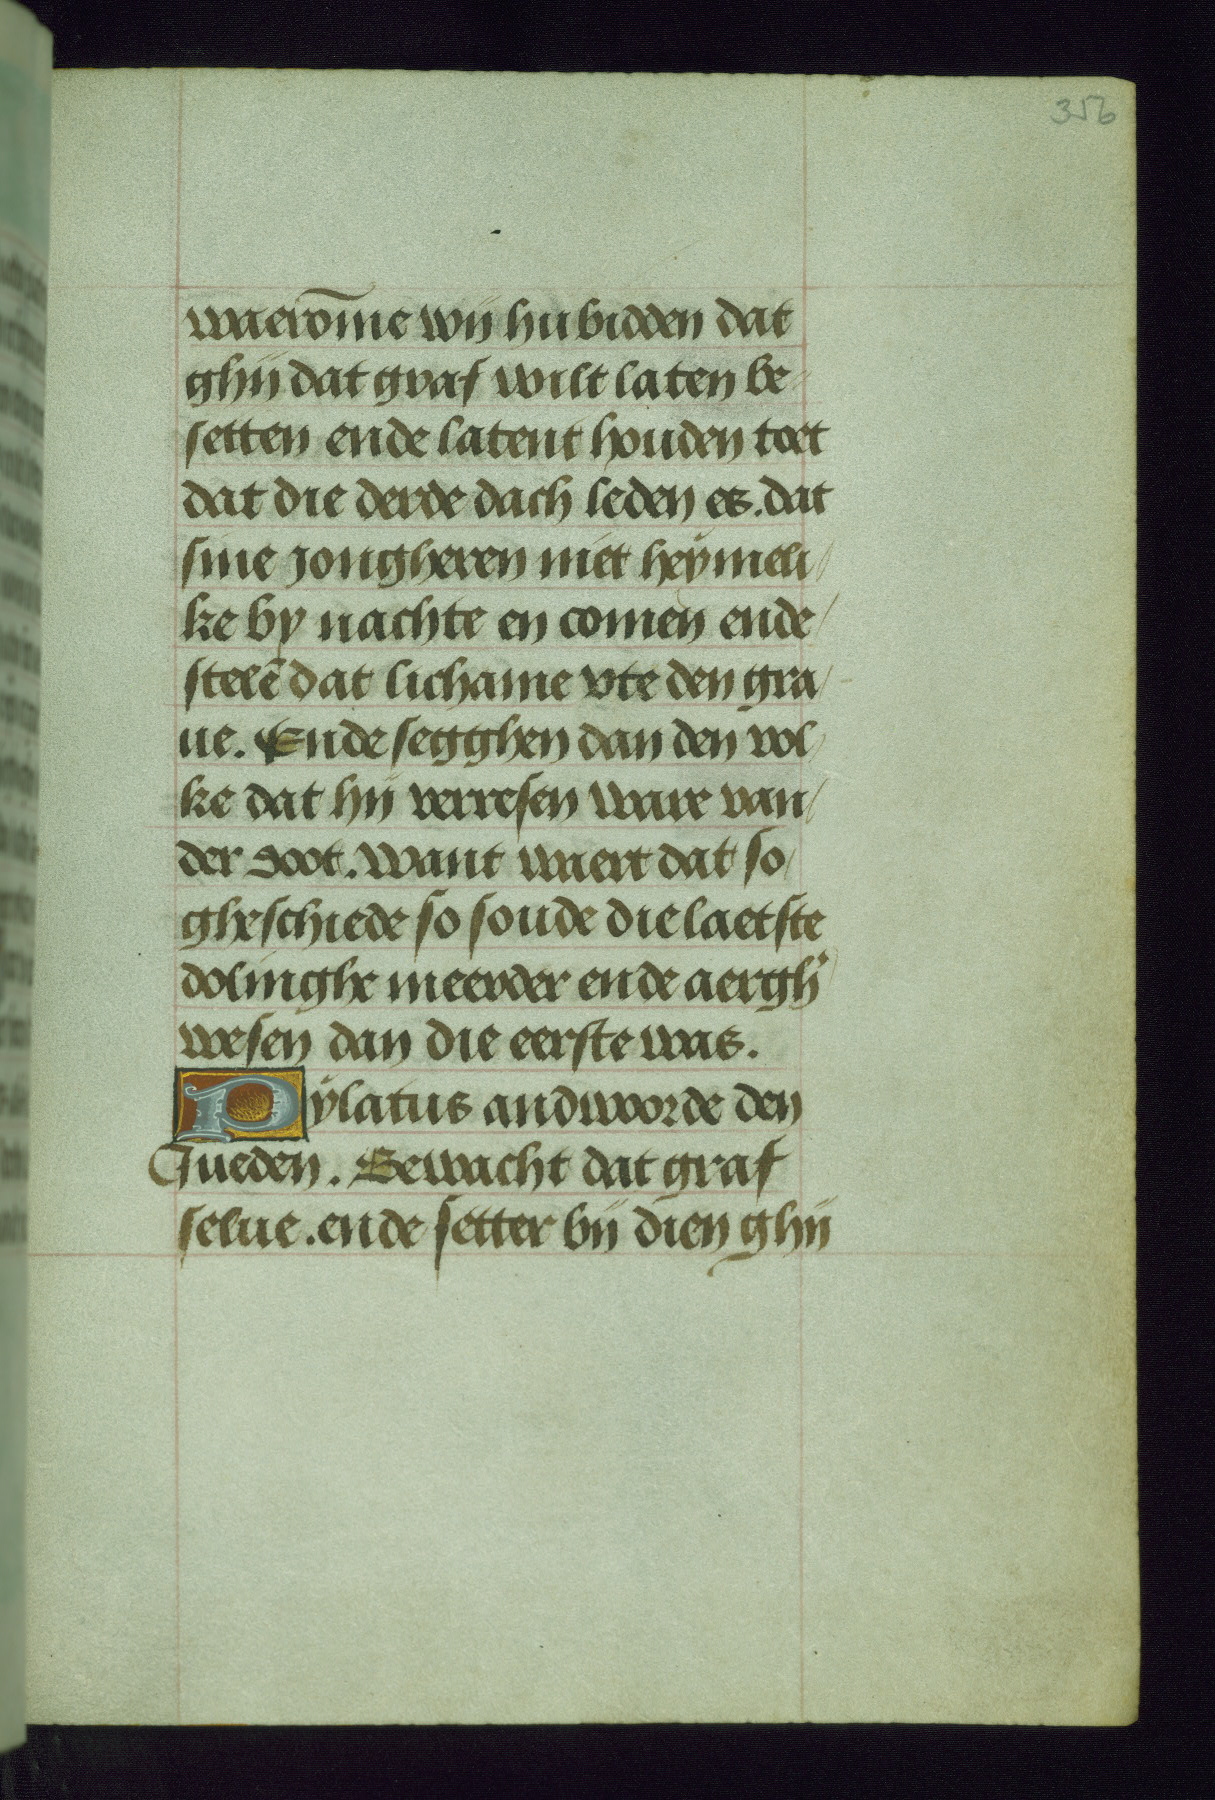 356
waerom̄e wij hu bidden dat
ghij dat graf wilt laten be-
setten ende latent houden toet
dat die derde dach leden es. dat
sine jongheren niet heymeli/
ke by nachte en comen ende/
stelē dat lichame vte den gra/
ue. Ende segghen dan den vol/
ke dat hij verresen ware van/
der doot. Want waert dat so/
gheschiede so soude die laetste
dolinghe meerder ende aergh'
wesen dan die eerste was.
Pÿlatus andwoorde den
Jueden. Bewacht dat graf
selue. ende setter bij dien ghij